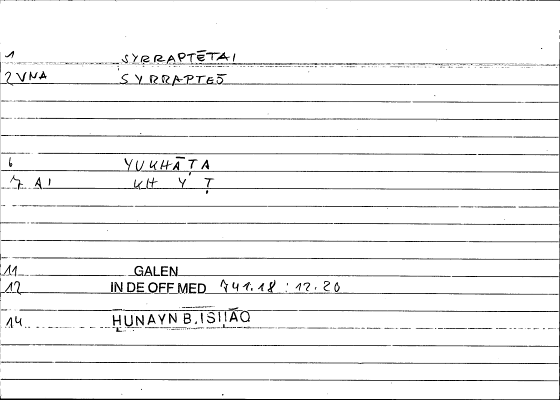 1 SYRRAPTĒTAI
2 VNA SYRRAPTEŠ
6 YUKHĀṬA
7 AI KH Y Ṭ
11 GALEN
12 IN DE OFF MED 741.18 : 12.20
14 ḤUNAYN B. ISḤĀQ